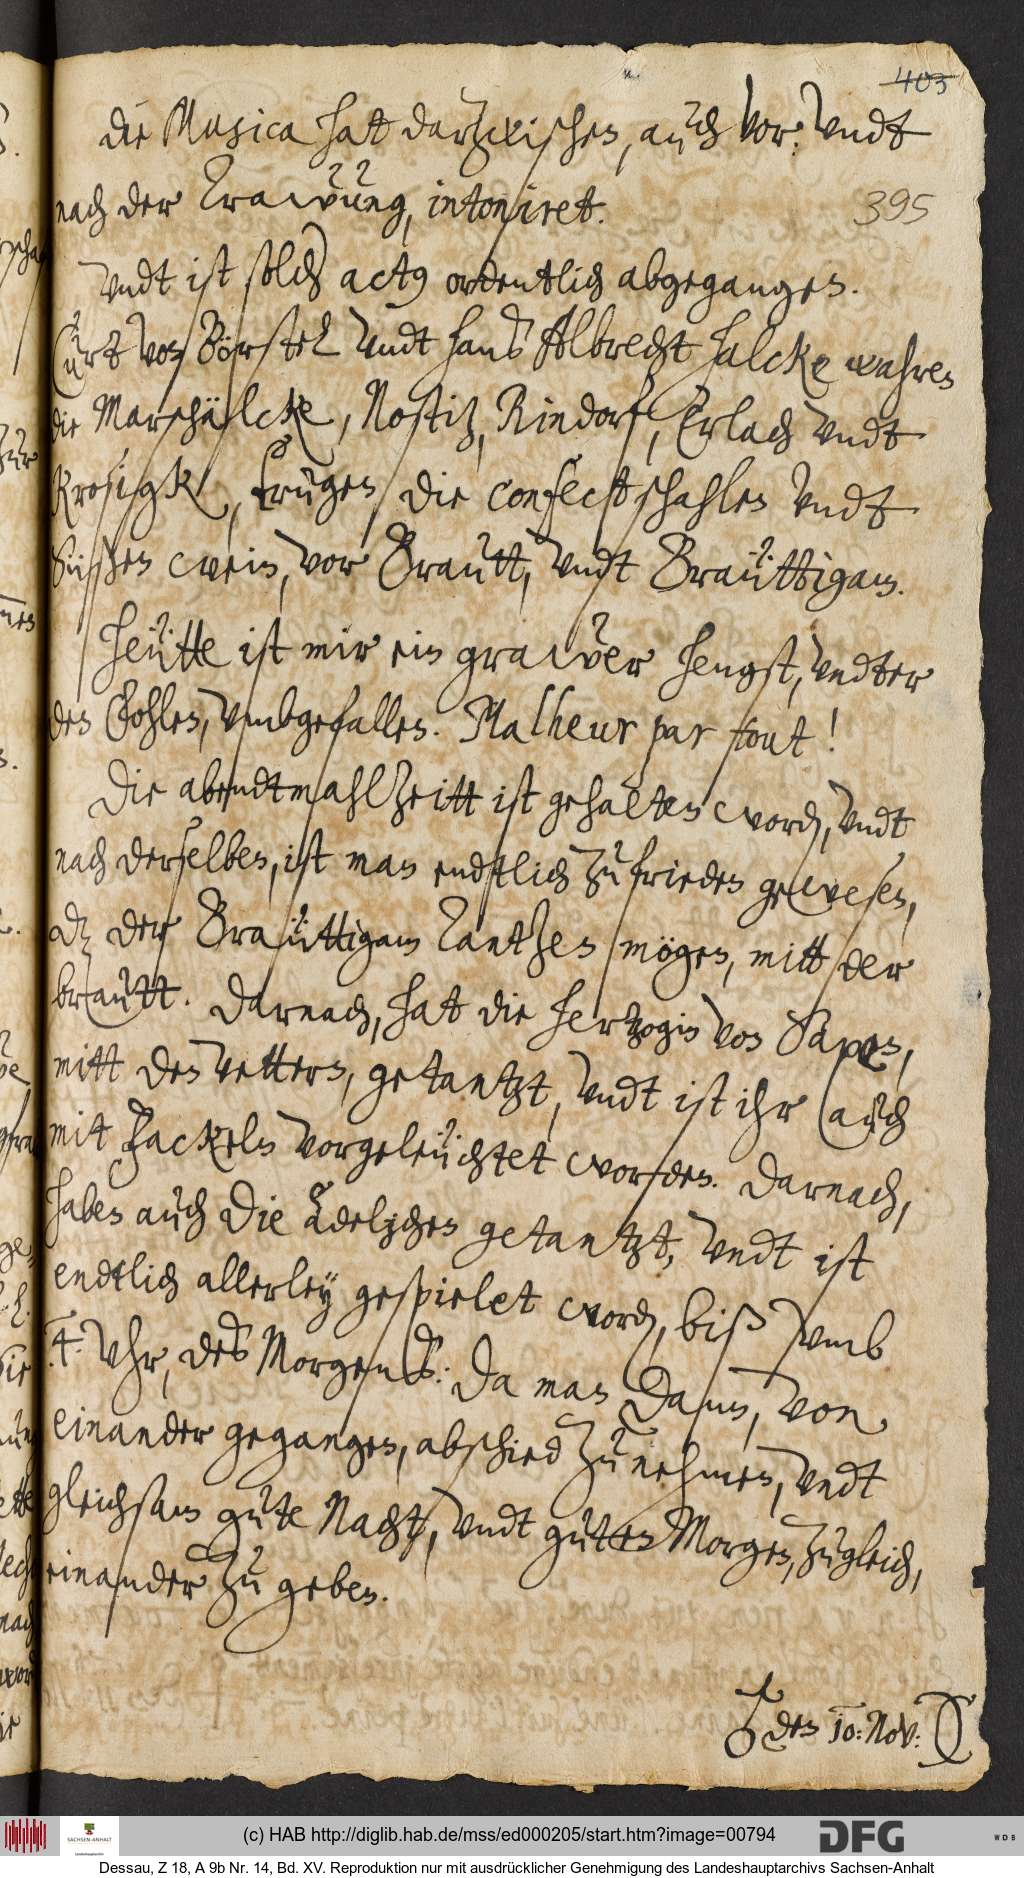 403
die Musica hatt darzwischen, auch vor: undt
nach der Trawüung, intoniret.
395
Undt ist solch act9 ordentlich abgegangen.
Curt von Börstel undt Hans Albrecht Halcke wahren
die Marschälcke, Nostitz, Rindorf, Erlach undt
Krosigk, trugen die confectschahlen undt
Süßen wein, vor Brautt, undt Bräuttigam.
Heütte ist mir ein grawer hengst, undter
den Fohlen, umbgefallen. Malheur par tout!
Die abendtmahlzeitt ist gehalten word, undt
nach derselben, ist man endtlich zu frieden gewesen,
dz der Bräuttigam Tantzen mögen, mitt der
brautt. Darnach, hat die Hertzogin von Saxen,
mitt den Vettern, getantzt, undt ist ihr auch
mit Fackeln vorgeleüchtet worden. Darnach,
haben auch die Adelichen getantzt, undt ist
endtlich allerley gespielet word, biß umb
.4. Uhr, des Morgends: Da man Dann, von
einander gegangen, abschied zu nehmen, undt
gleichsam gute Nacht, undt guten Morgen, zugleich,
einander zu geben.
♄ den 10: Nov:
(c) HAB http://diglib.hab.de/mss/ed000205/start.htm?image=00794
SACHSEN-ANHALT
DFG
WDB
Dessau, Z 18, A 9b Nr. 14, Bd. XV. Reproduktion nur mit ausdrücklicher Genehmigung des Landeshauptarchivs Sachsen-Anhalt